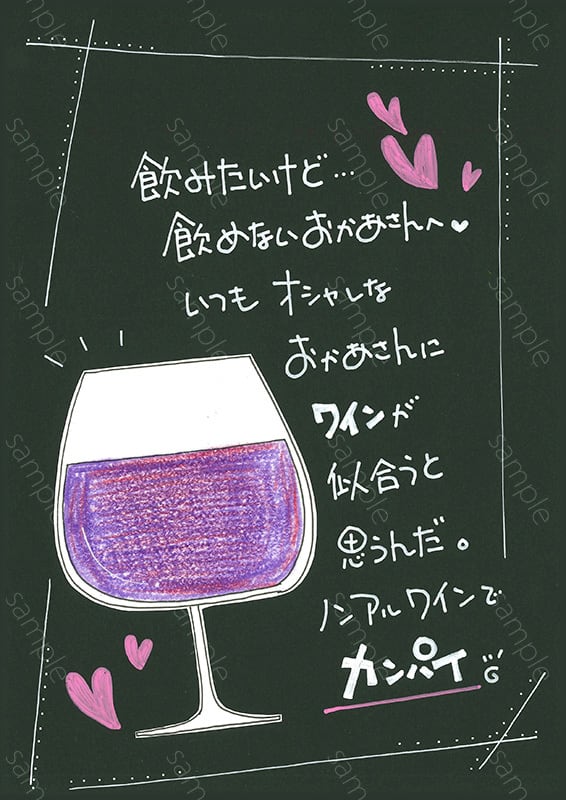 飲みたいけど…
飲めないおかあさんへ♥
いつも オシャレな
おかあさんに
ワインが
似合うと
思うんだ。
ノンアルワインで
カンパイ
sample